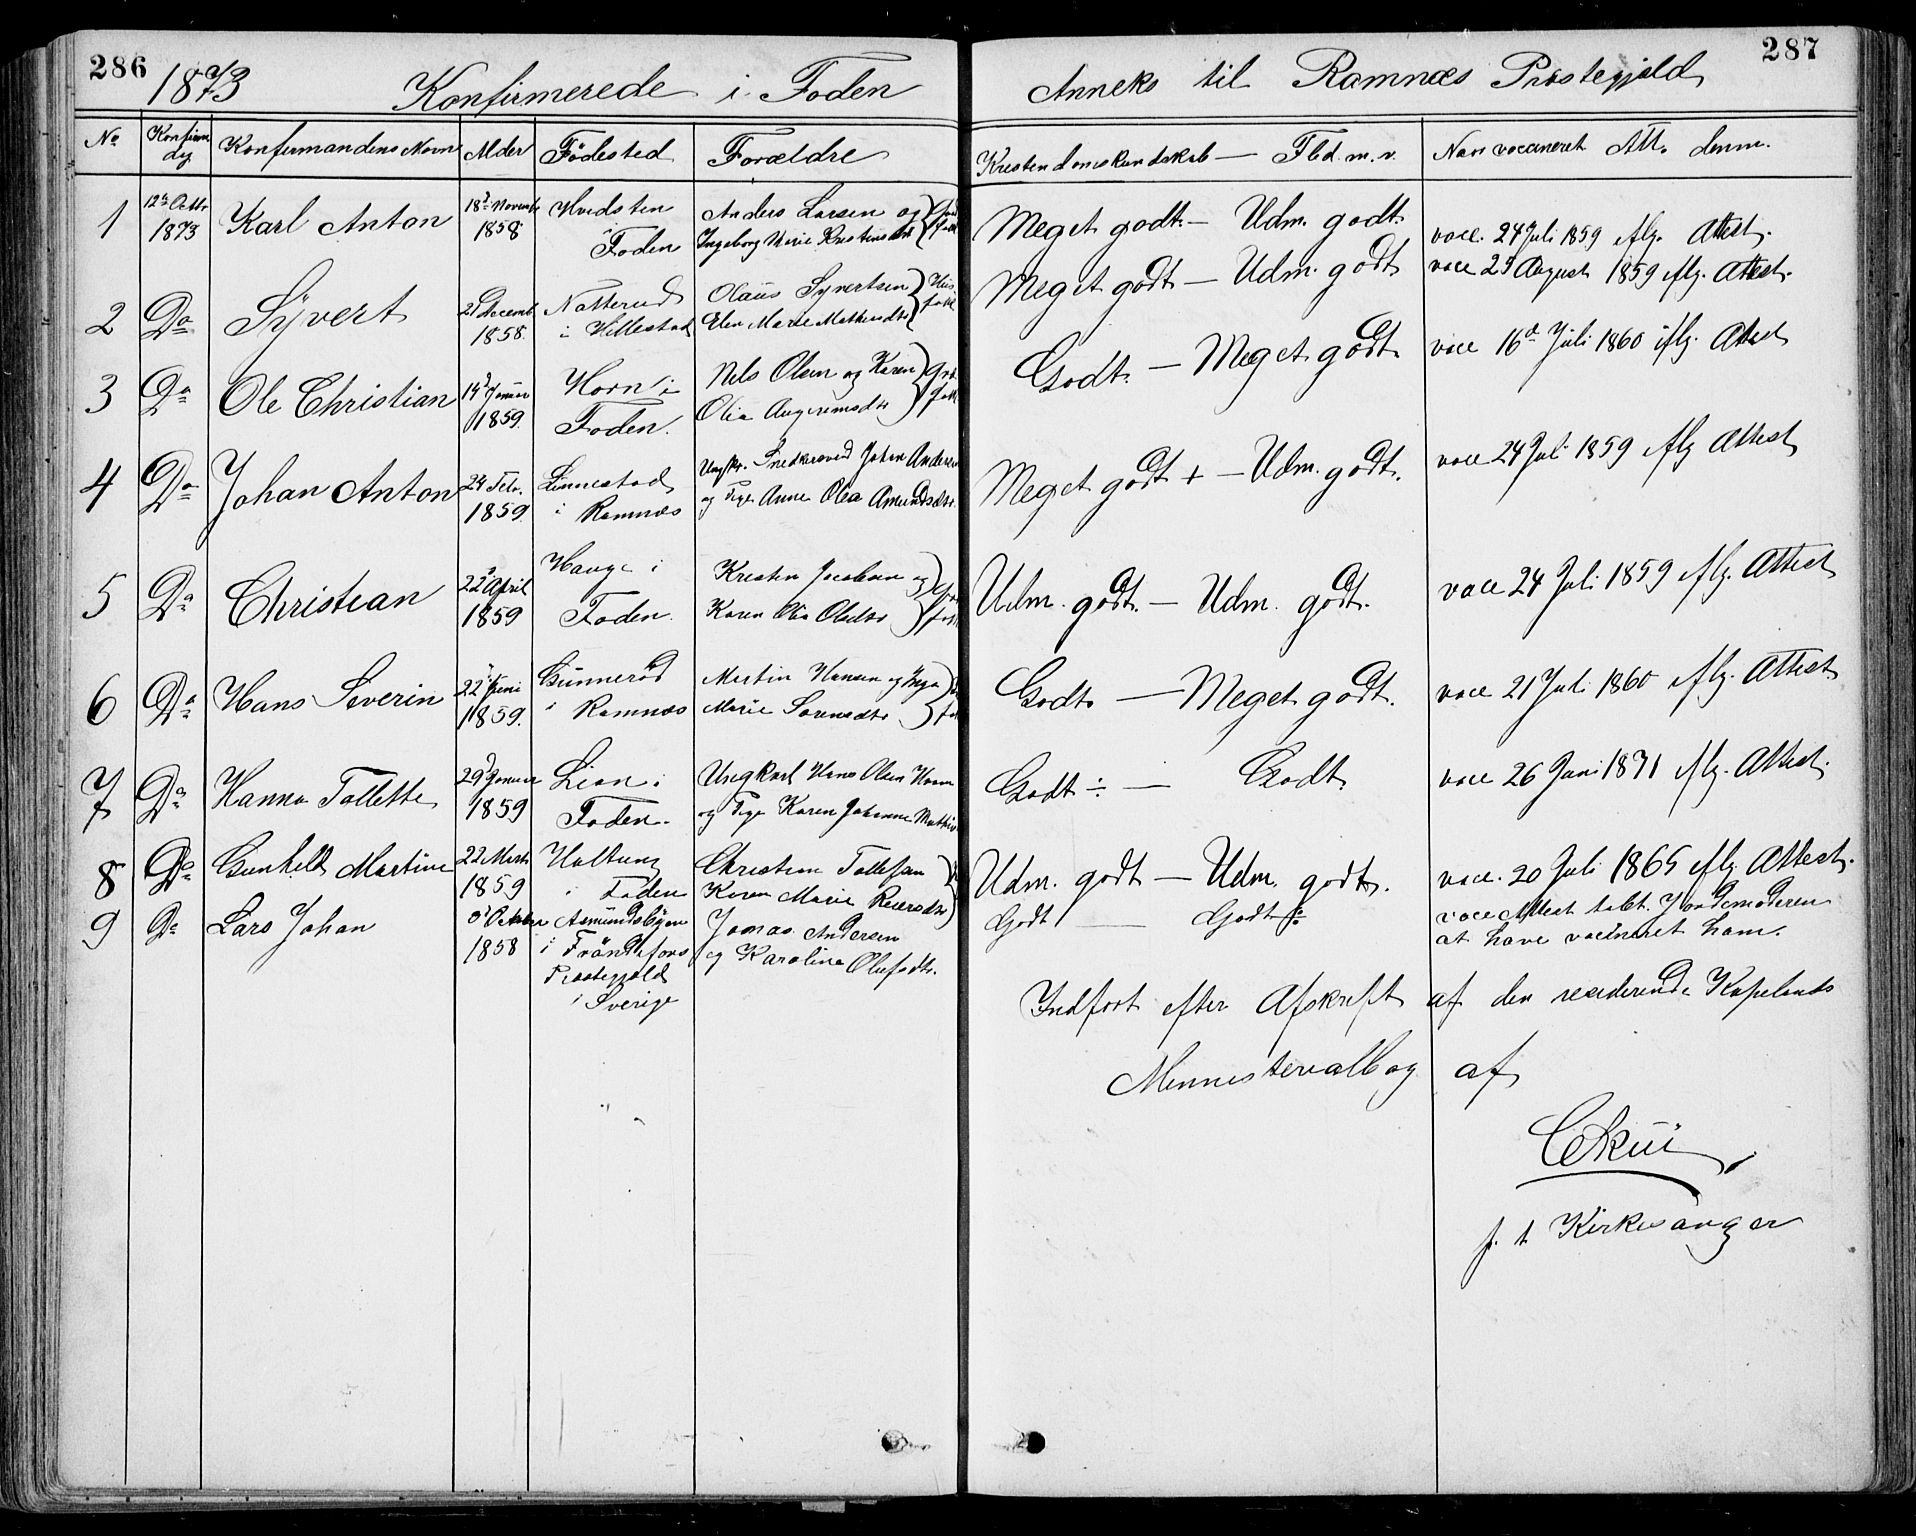 286
1873 Konfirmerede i Foden
Anneks til Ramnæs Præstegjæld
287
No Konfirm dag Konfirmandens Navn Alder Födested Forældre
Kristendomskundskab — Flid m. v. Naar vaccineret Att. derom.
1 12te Octbr 1873 Karl Anton 18de Novembr 1858 Hvidsten i Foden Anders Larsen og Ingeborg Marie
Meget godt. — Udm. godt. vacc. 24 Juli 1859 iflg. Attest.
2 Do Syvert 21 Decemb 1858 i Hillestad Olaus Syvertsen Elen Marie
Meget godt — Udm. godt vacc 25 August 1859 iflg. Attest.
3 Do Ole Christian 14de Januar 1859. Horn i Foden. Nels Olsen og Karen Olia
Godt. — Meget godt vacc 16de Juli 1860 iflg. Attest
4 Do Johan Anton 24 Febr. 1859. Linnestad i Ramnæs Ungkr. Johan Andersen og Pige Anne Olea Amundsdtr.
Meget godt + — Udm. godt. vacc 24 Juli 1859 iflg Attest
5 Do Christian 22de April 1859 Hauge i Foden. Kristen Jacobsen og Karen Olia Olsdtr
Udm. godt. — Udm. godt. vacc 24 Juli 1859 iflg. Attest
6 Do Hans Severin 22de Juni 1859. Gunneröd i Ramnæs Martin Hansen og Inga Marie Sörensdtr
Godt. — Meget godt. vacc 21 Juli 1860 iflg. Attest
7 Do Hanna Tollette 29de Januar 1859 Lian i Foden. Ungkarl Hans Olsen og Pige Karen Johanne
Godt ÷ — Godt vacc 26 Juni 1871 iflg. Attest.
8 Do Gunhild Martine 22 Marts 1859 i Foden Christen Tollefsen Karen Marie Reiersdtr
Udm. godt — Udm. godt. vacc. 20 Juli 1865 iflg Attest.
9 Do Lars Johan October 1858 i Præstegjæld i Sverige Jonas Andersen og Karoline Olufsdtr.
Godt — Godt ÷ vacc Attest tabt. Jordemoderen
at have vaccineret ham.
Indfört efter Afskrift af den residerende Kapelans
Ministerialbog af
p. t. Kirkesanger